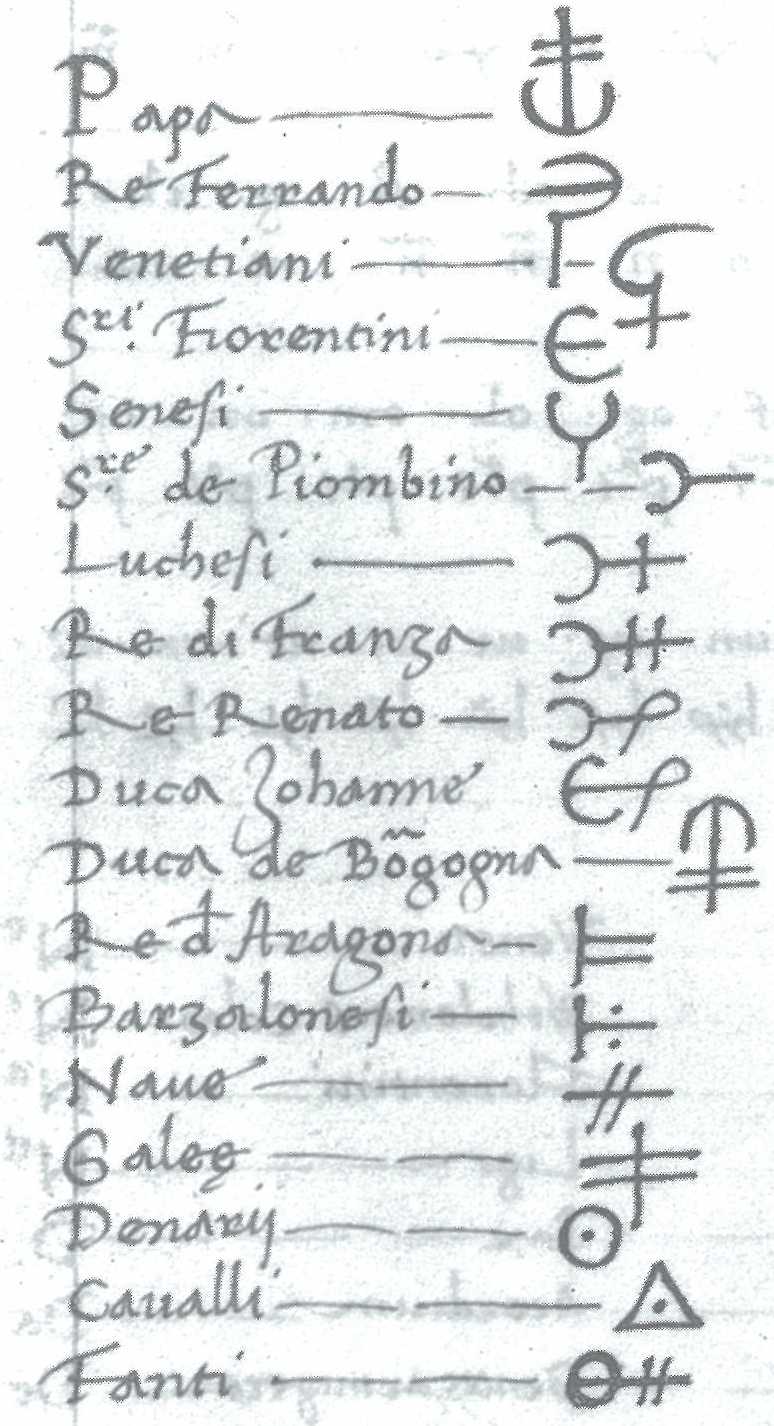 Papa
Re Ferrando
Venetiani
Sri. Fiorentini
Senesi
S.re de Piombino
Luchesi
Re di Franza
Re Renato
Duca Johanne
Duca de Bõgogna
Re d Aragona
Barzalonesi
Naue
Galee
Denarij
Caualli
Fanti